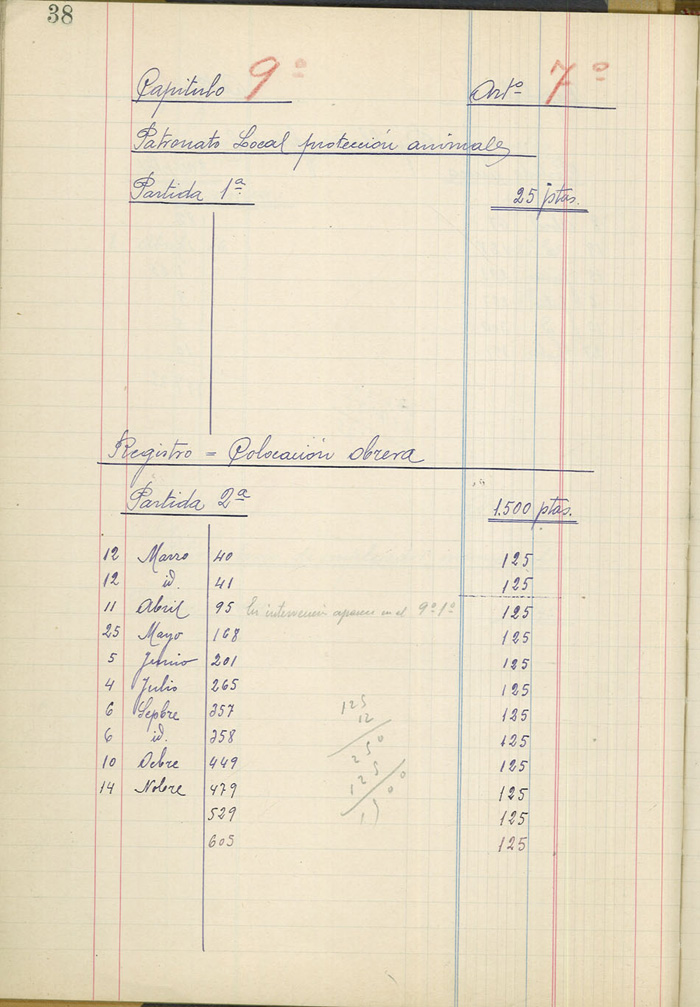 38
Capitulo 9º Artº 7º
Patronato Local protección animales
Partida 1ª 25 ptas.
Registro = Colocación obrera
Partida 2ª 1.500 ptas.
12 Marzo 40 125
12 id. 41 125
11 Abril 95 En intervención aparece en el 9º 1º 125
25 Mayo 168 125
5 Junio 201 125
4 Julio 265 125
6 Sepbre 357 125
6 id. 358 125
10 Octbre 449 125
14 Nobre 479 125
529 125
605 125
125
12
250
125